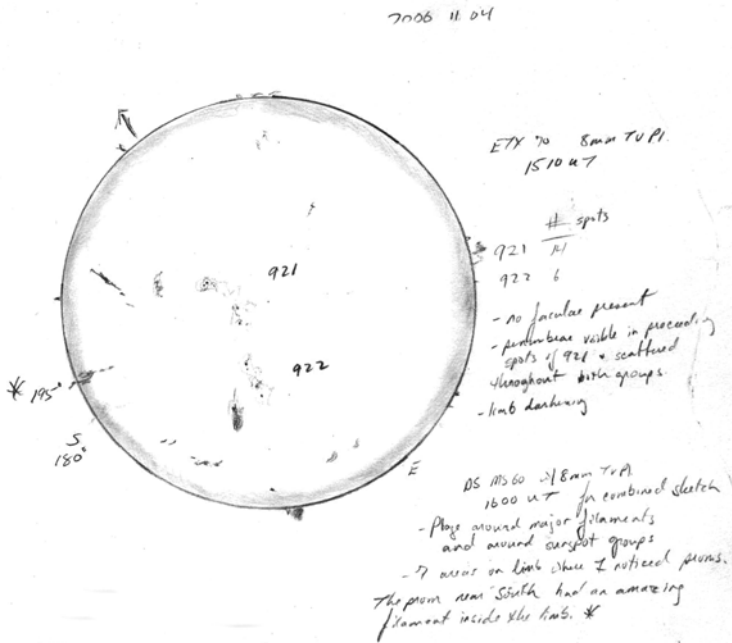 2006 11 04
ETX 70 8mm TV Pl.
1510 UT
# spots
921 14
922 6
- no faculae present
- penumbrae visible in proceeding
spots of 921 & scattered
throughout both groups.
- limb darkening
921
922
* 195°
S
180°
E
DS MS60 w/ 8mm TV Pl
1600 UT for combined sketch
- Plage around major filaments
and around sunspot groups
- 7 areas on limb where I noticed proms.
The prom near South had an amazing
filament inside the limb. *